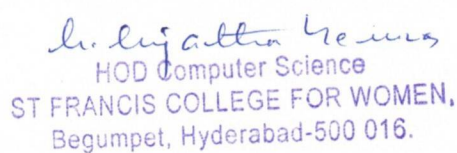 HOD Computer Science
ST FRANCIS COLLEGE FOR WOMEN,
Begumpet, Hyderabad-500 016.